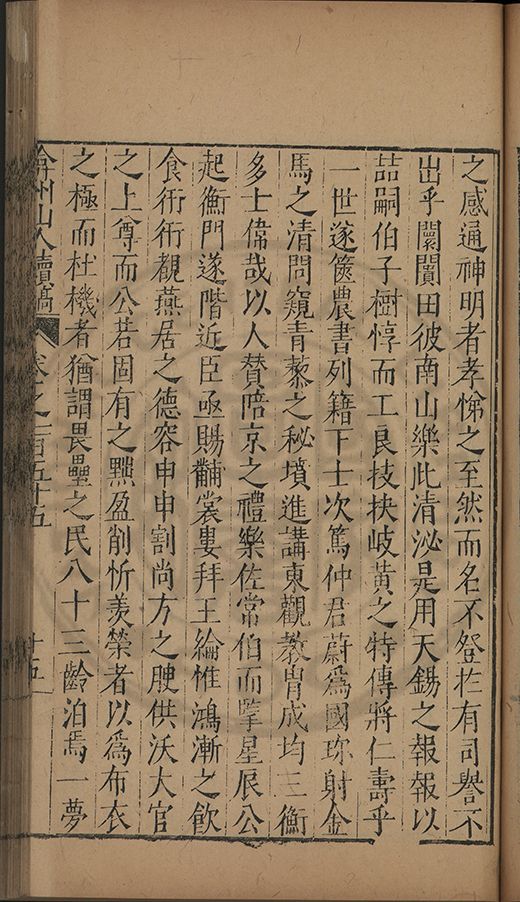 之感通神明者孝悌之至然而名不登於有司譽不
出乎闤闠田彼南山樂此清泌是用天錫之報報以
喆嗣伯子樹惇而工良技挾岐黃之特傳將仁壽乎
一世遂篋農書列籍下士次篤仲君蔚爲國珍射金
馬之清問窺青藜之秘墳進講東觀教胄成均三衡
多士偉哉以人贊陪京之禮樂佐常伯而掌星辰公
起衡門遂階近臣亟賜黼裳婁拜王綸惟鴻漸之飲
食衎衎覩燕居之德容申申割尚方之腴供沃大官
之上尊而公若固有之黜盈削忻羡榮者以爲布衣
之極而杜機者猶謂畏壘之民八十三齡泊焉一夢
弇州山人續稿 卷之一百五十五 十五